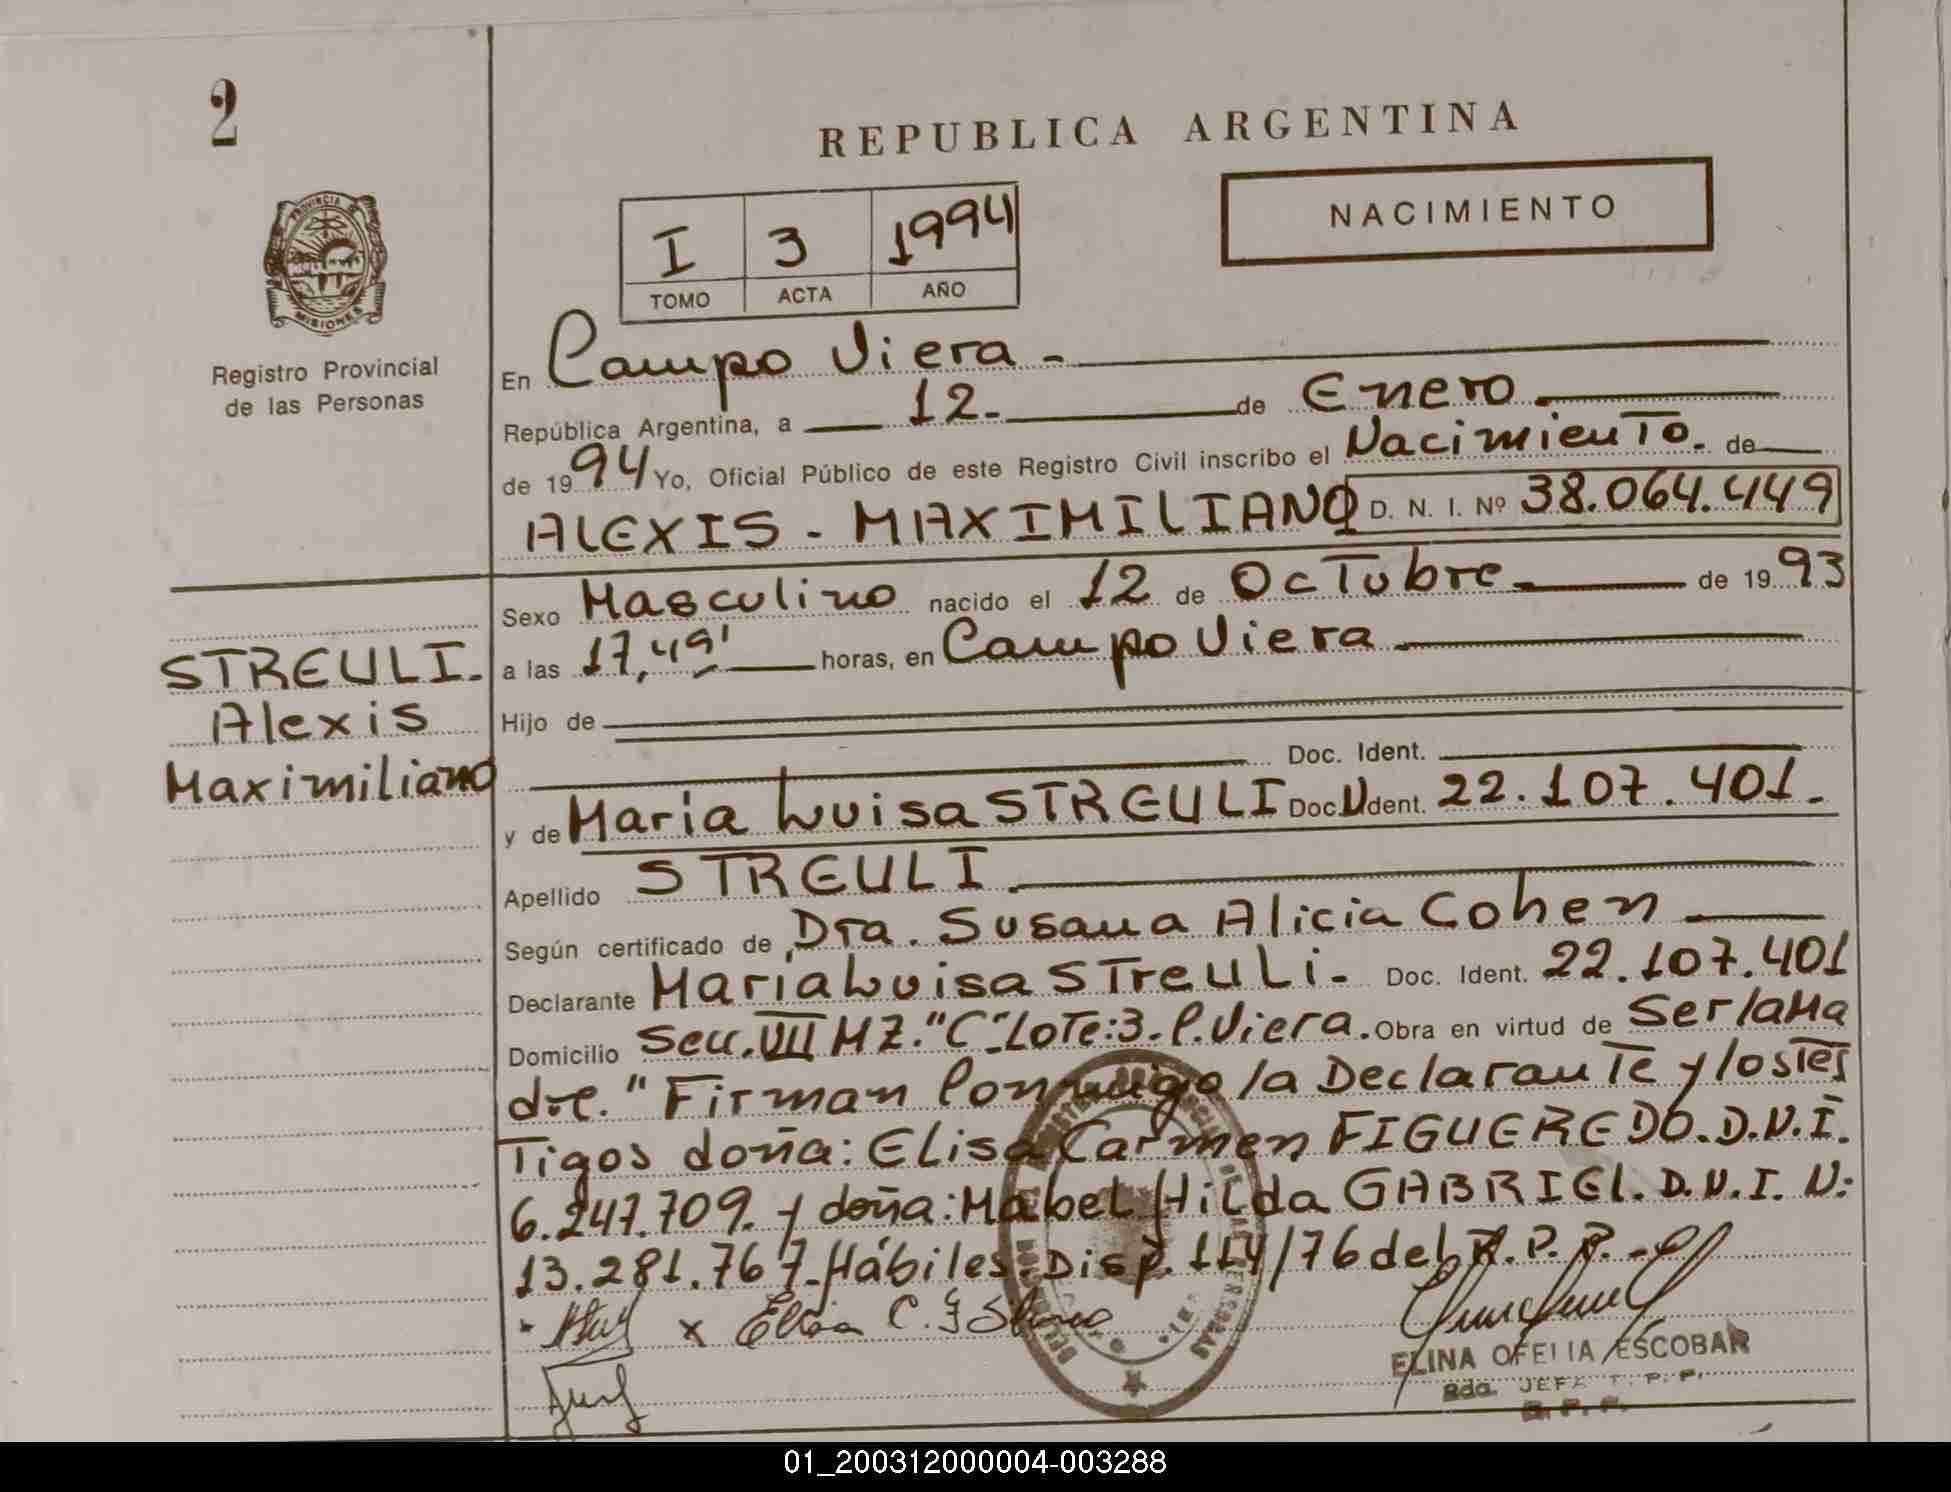 2
REPUBLICA ARGENTINA
NACIMIENTO
I 3 1994
TOMO ACTA AÑO
PROVINCIA DE
MISIONES
Registro Provincial
de las Personas
En Campo Viera -
República Argentina, a 12- de Enero
de 1994 Yo, Oficial Público de este Registro Civil inscribo el Nacimiento. de
ALEXIS - MAXIMILIANO D. N. I. Nº 38.064.449
Sexo Masculino nacido el 12 de Octubre de 1993
a las 17,49' horas, en Campo Viera
Hijo de
Doc. Ident.
y de Maria Luisa STREULI Doc. Ident. 22.107.401.
Apellido STREULI
Según certificado de Dra. Susana Alicia Cohen
Declarante Maria Luisa STreuLi. Doc. Ident. 22.107.401
Domicilio Secc. VII MZ. "C" LoTe:3. C. Viera. Obra en virtud de Ser la Ma
dre." Firman Conmigo la Declarante y los Tes
Tigos doña: Elisa Carmen FIGUEREDO. D.N.I.
6.247.709. y doña: Mabel Hilda GABRIEL. D.N.I. N:
13.281.767. Hábiles. Disp. 114/76 del R.P.P.
STREULI.
Alexis
Maximiliano
x Elisa C. F
ELINA OFELIA ESCOBAR
2da. JEFA R. P. P.
R. P. P.
01_200312000004-003288